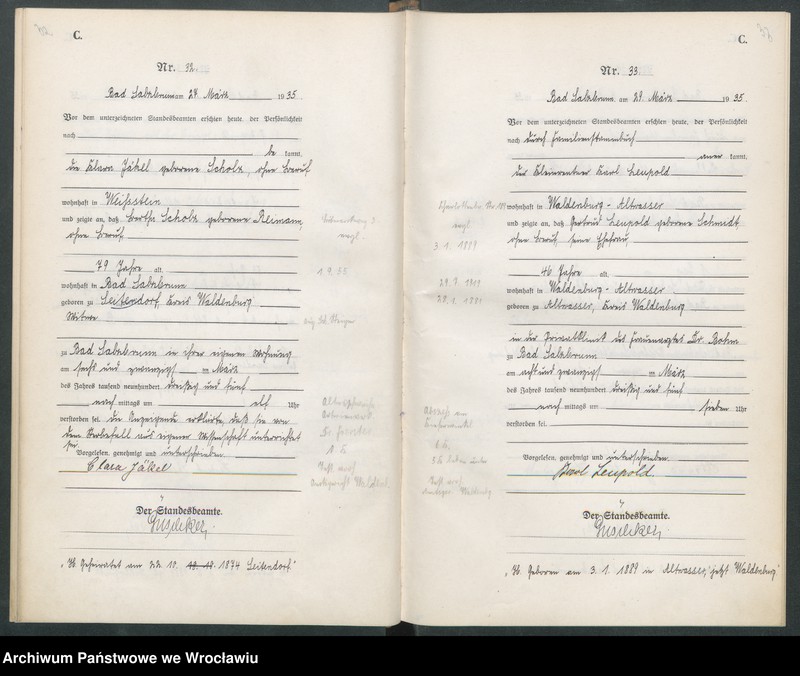 C.
Nr. 32.
Bad Salzbrunn am 27. März 1935
Vor dem unterzeichneten Standesbeamten erschien heute, der Persönlichkeit
nach
be kannt,
die Klara Jäkel geborene Scholz, ohne Beruf
wohnhaft in Weißstein
und zeigte an, daß Bertha Scholz geborene Reimann,
ohne Beruf,
79 Jahre alt
wohnhaft in Bad Salzbrunn
geboren zu Seitendorf, Kreis Waldenburg
Witwe
zu Bad Salzbrunn in ihrer eigenen Wohnung
am sechs und zwanzigsten März
des Jahres tausend neunhundert dreißig und fünf
nach mittags um elf Uhr
verstorben sei. Die Anzeigende erklärte, daß sie von
dem Sterbefall aus eigener Wissenschaft unterrichtet
sei.
Vorgelesen, genehmigt und unterschrieben
Clara Jäkel
Der Standesbeamte.
"H. Geheiratet am 22. 10. 1874 Seitendorf"
1 9. 35
C.
Nr. 33.
Bad Salzbrunn am 29. März 1935
Vor dem unterzeichneten Standesbeamten erschien heute, der Persönlichkeit
nach durch Familienstammbuch
aner kannt,
der Kleinrentner Karl Leupold
wohnhaft in Waldenburg - Altwasser
und zeigte an, daß Gertrud Leupold geborene Schmidt,
ohne Beruf, seine Ehefrau,
46 Jahre alt
wohnhaft in Waldenburg - Altwasser
geboren zu Altwasser, Kreis Waldenburg
in der Privatklinik des Frauenarztes Dr. Böhm
zu Bad Salzbrunn
am acht und zwanzigsten März
des Jahres tausend neunhundert dreißig und fünf
nach mittags um sieben Uhr
verstorben sei.
Vorgelesen, genehmigt und unterschrieben
Karl Leupold
Der Standesbeamte.
"H. Geboren am 3. 1. 1889 in Altwasser, jetzt Waldenburg"
3. 1. 1889
Archiwum Państwowe we Wrocławiu